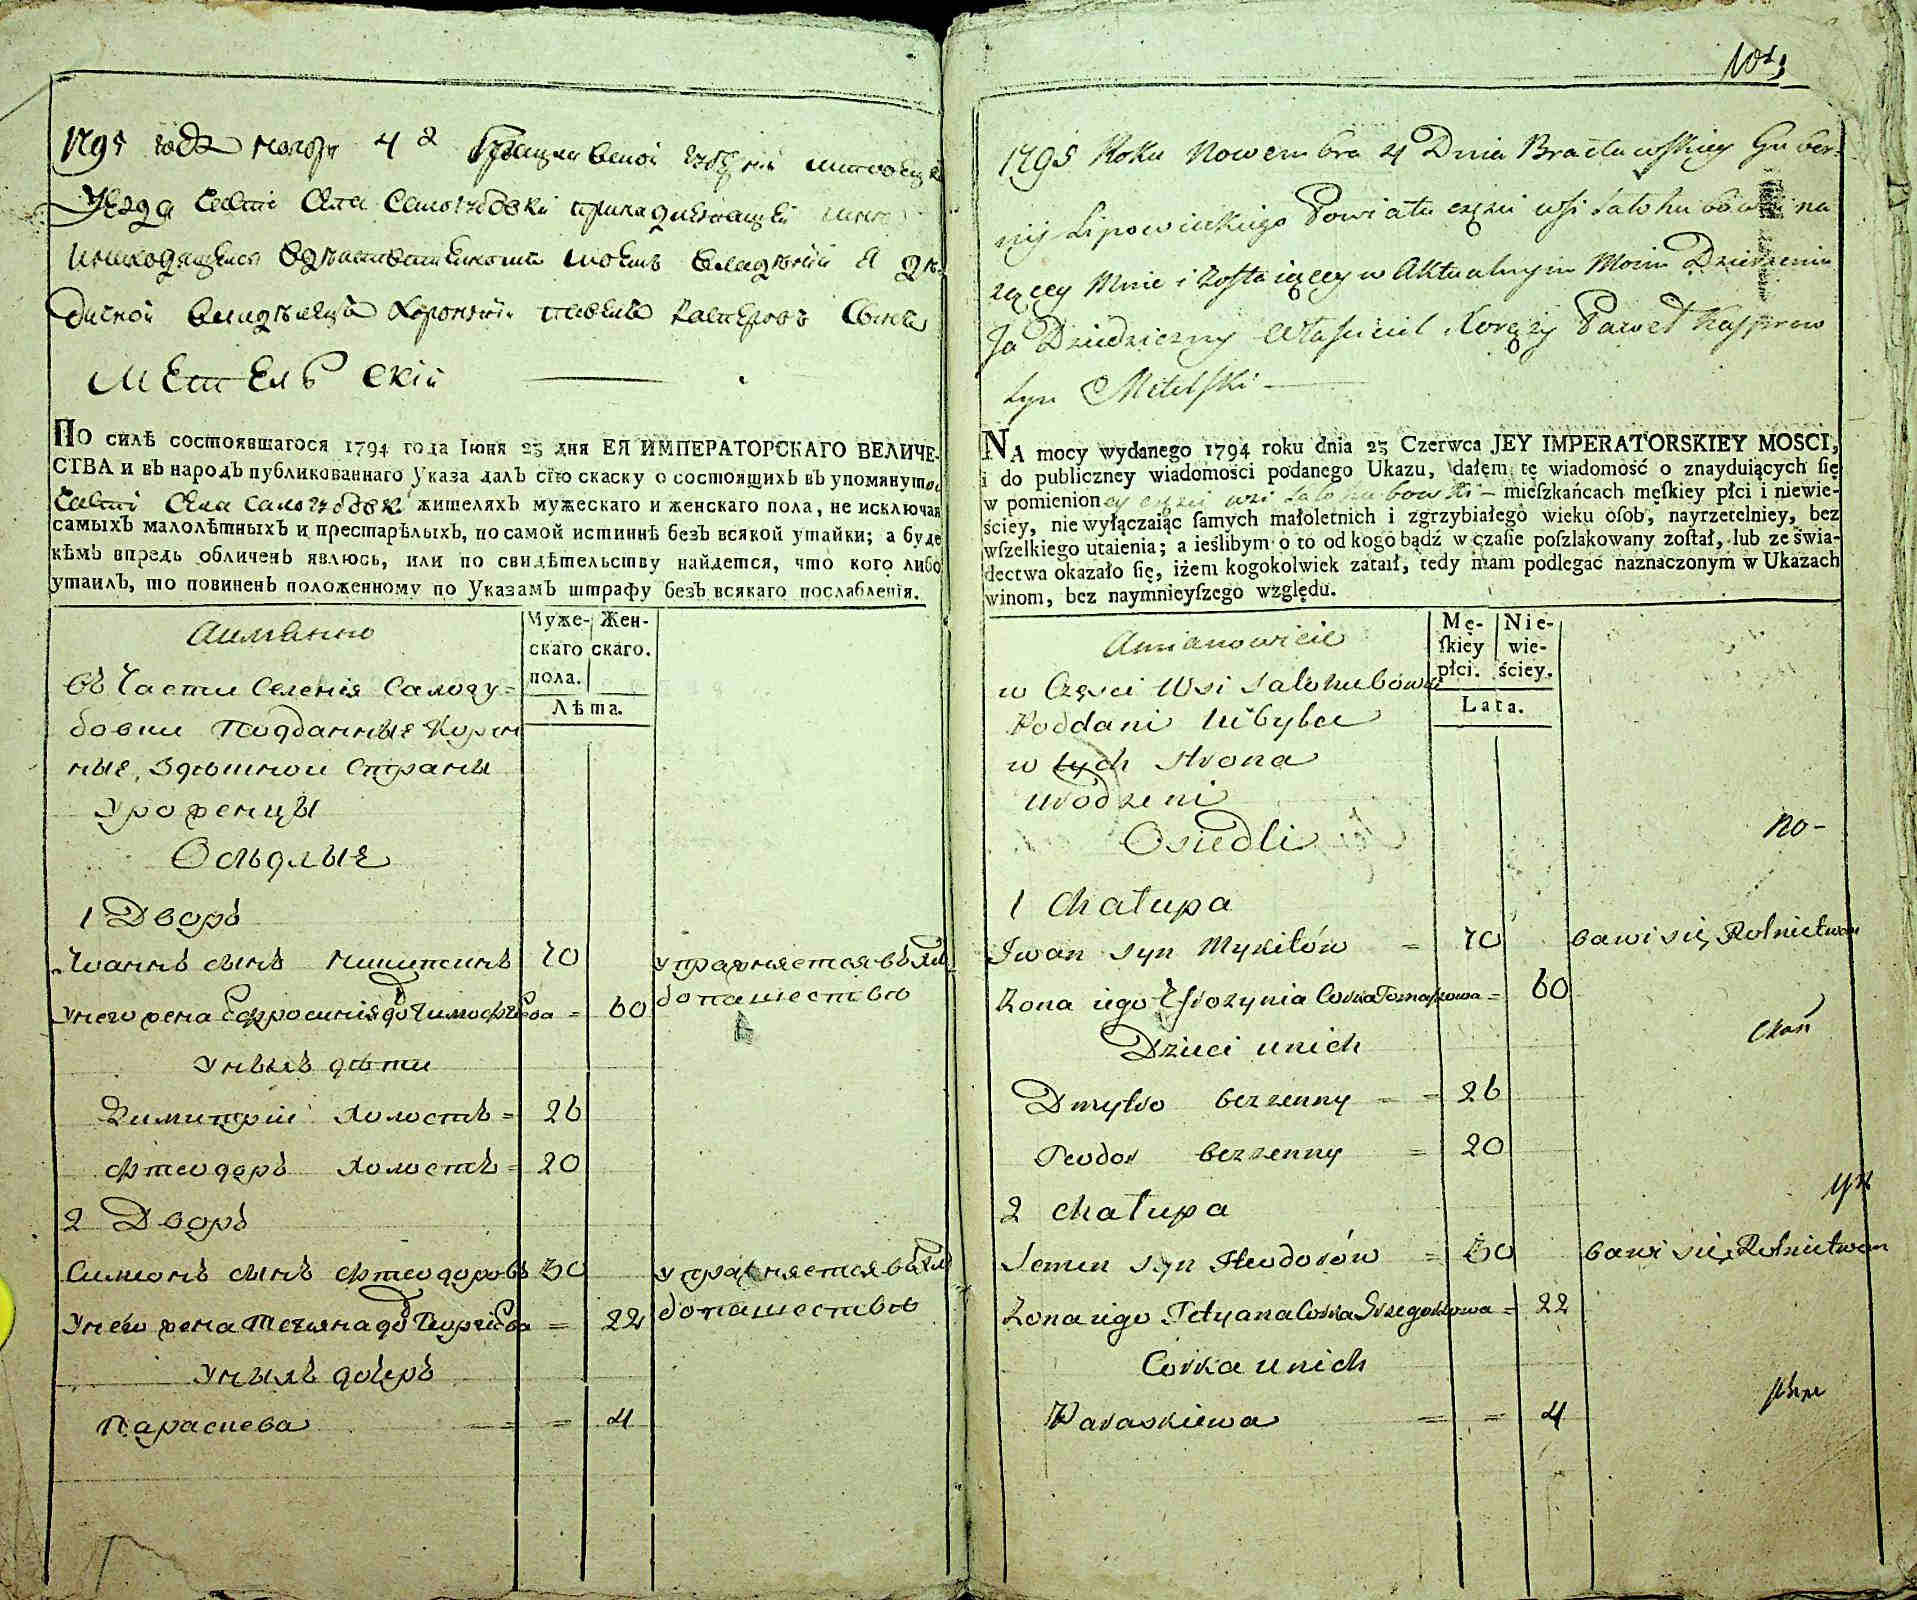 1795 года ноября 4 д Брацлавской губернии Липовецкаго
Уезда части села Сологубовки принадлежащей мне
и находящейся в действительномъ моемъ владении я
дичной владелецъ Хоронжий Павелъ Касперовъ Сынъ
Метельский
По силѣ состоявшагося 1794 года Iюня 23 дня ЕЯ ИМПЕРАТОРСКАГО ВЕЛИЧЕ-
СТВА и въ народъ публикованнаго Указа далъ сїю скаску о состоящихъ въ упомянутой
части села Сологубовки жителяхъ мужескаго и женскаго пола, не исключая
самыхъ малолѣтныхъ и престарѣлыхъ, по самой истиннѣ безъ всякой утайки; а буде
кѣмъ впредь обличенъ явлюсь, или по свидѣтельству найдется, что кого либо
утаилъ, то повиненъ положенному по Указамъ штрафу безъ всякаго послабленїя.
Муже- Жен-
скаго скаго.
пола.
Лѣта.
Аимянно
въ Части Селенія Салогу-
бовки Подданные Корен
ные, Здешной Страны
Уроженцы
Оседлые
1 Дворъ
Иоаннъ сынъ Никитинъ 70 упражняется въ хле
У него жена Ефросинія до Тимофеева = 60 бопашестве
У нихъ дети
Димитрій Холостъ = 26
Фтеодоръ Холостъ = 20
2 Дворъ
Симонъ сынъ Фтеодоровъ 30 упражняется в хле
У него жена Тетяна до Георгіева = 22 бопашестве
У нихъ дочеръ
Параскева = = 4
1795 Roku Nowembra 4 Dnia Bracławskiey Guber-
nij Lipowieckiego Powiatu części wsi Sałohubowki na
rzący Mnie i Zostaiącey w Aktualnym Moim Dzierżeniu
Ja Dziedziczny Właściciel Korąży Paweł Kasprow
Syn Metelski
NA mocy wydanego 1794 roku dnia 23 Czerwca JEY IMPERATORSKIEY MOSCI,
i do publiczney wiadomości podanego Ukazu, dałem tę wiadomość o znayduiących ſię
w pomienioney części wsi Sałohubowki — mieſzkańcach męſkiey płci i niewie-
ściey, nie wyłączaiąc ſamych małoletnich i zgrzybiałego wieku oſob, nayrzetelniey, bez
wſzelkiego utaienia; a ieślibym o to od kogo bądź w czaſie poſzlakowany zoſtał, lub ze świa-
dectwa okazało ſię, iżem kogokolwiek zataił, tedy mam podlegać naznaczonym w Ukazach
winom, bez naymnieyſzego względu.
Mę- Nie-
ſkiey wie-
płci. ściey.
Lata.
Amianowicie
w Części Wsi Sałohubowki
Poddani
w tych strona
urodzeni
Osiedli
No-
1 Chałupa
Iwan syn Mykitów = 70 bawi się Rolnictwem
Żona iego Efrozynia Corka Tomaszowa = 60
Dzieci unich
Dmytro bezżenny = = 26
Teodor bezżenny = 20
2 Chałupa
Semen syn Theodorów = 30 bawi się Rolnictwem
Żona iego Tetyana Corka Grzegorzowa = 22
Corka unich
Paraskiewa = = 4